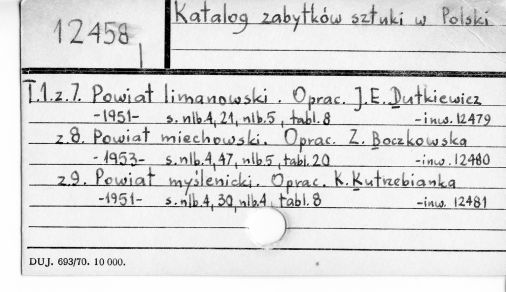 12458
Katalog zabytków sztuki w Polski
T.1.z.7. Powiat limanowski. Oprac. J.E. Dutkiewicz
-1951- s.nlb.4, 21, nlb.5, tabl.8 -inw. 12479
z.8. Powiat miechowski. Oprac. Z. Boczkowska
-1953- s.nlb.4, 47, nlb.5, tabl.20 -inw. 12480
z.9. Powiat myślenicki. Oprac. K. Kutrzebianka
-1951- s.nlb.4, 30, nlb.4, tabl.8 -inw. 12481
DUJ. 693/70. 10 000.